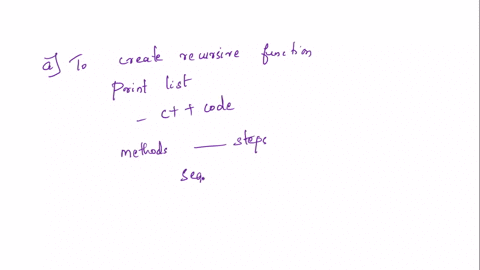 a] To create recursive function
Print list
- c++ code
methods — steps
Seq.